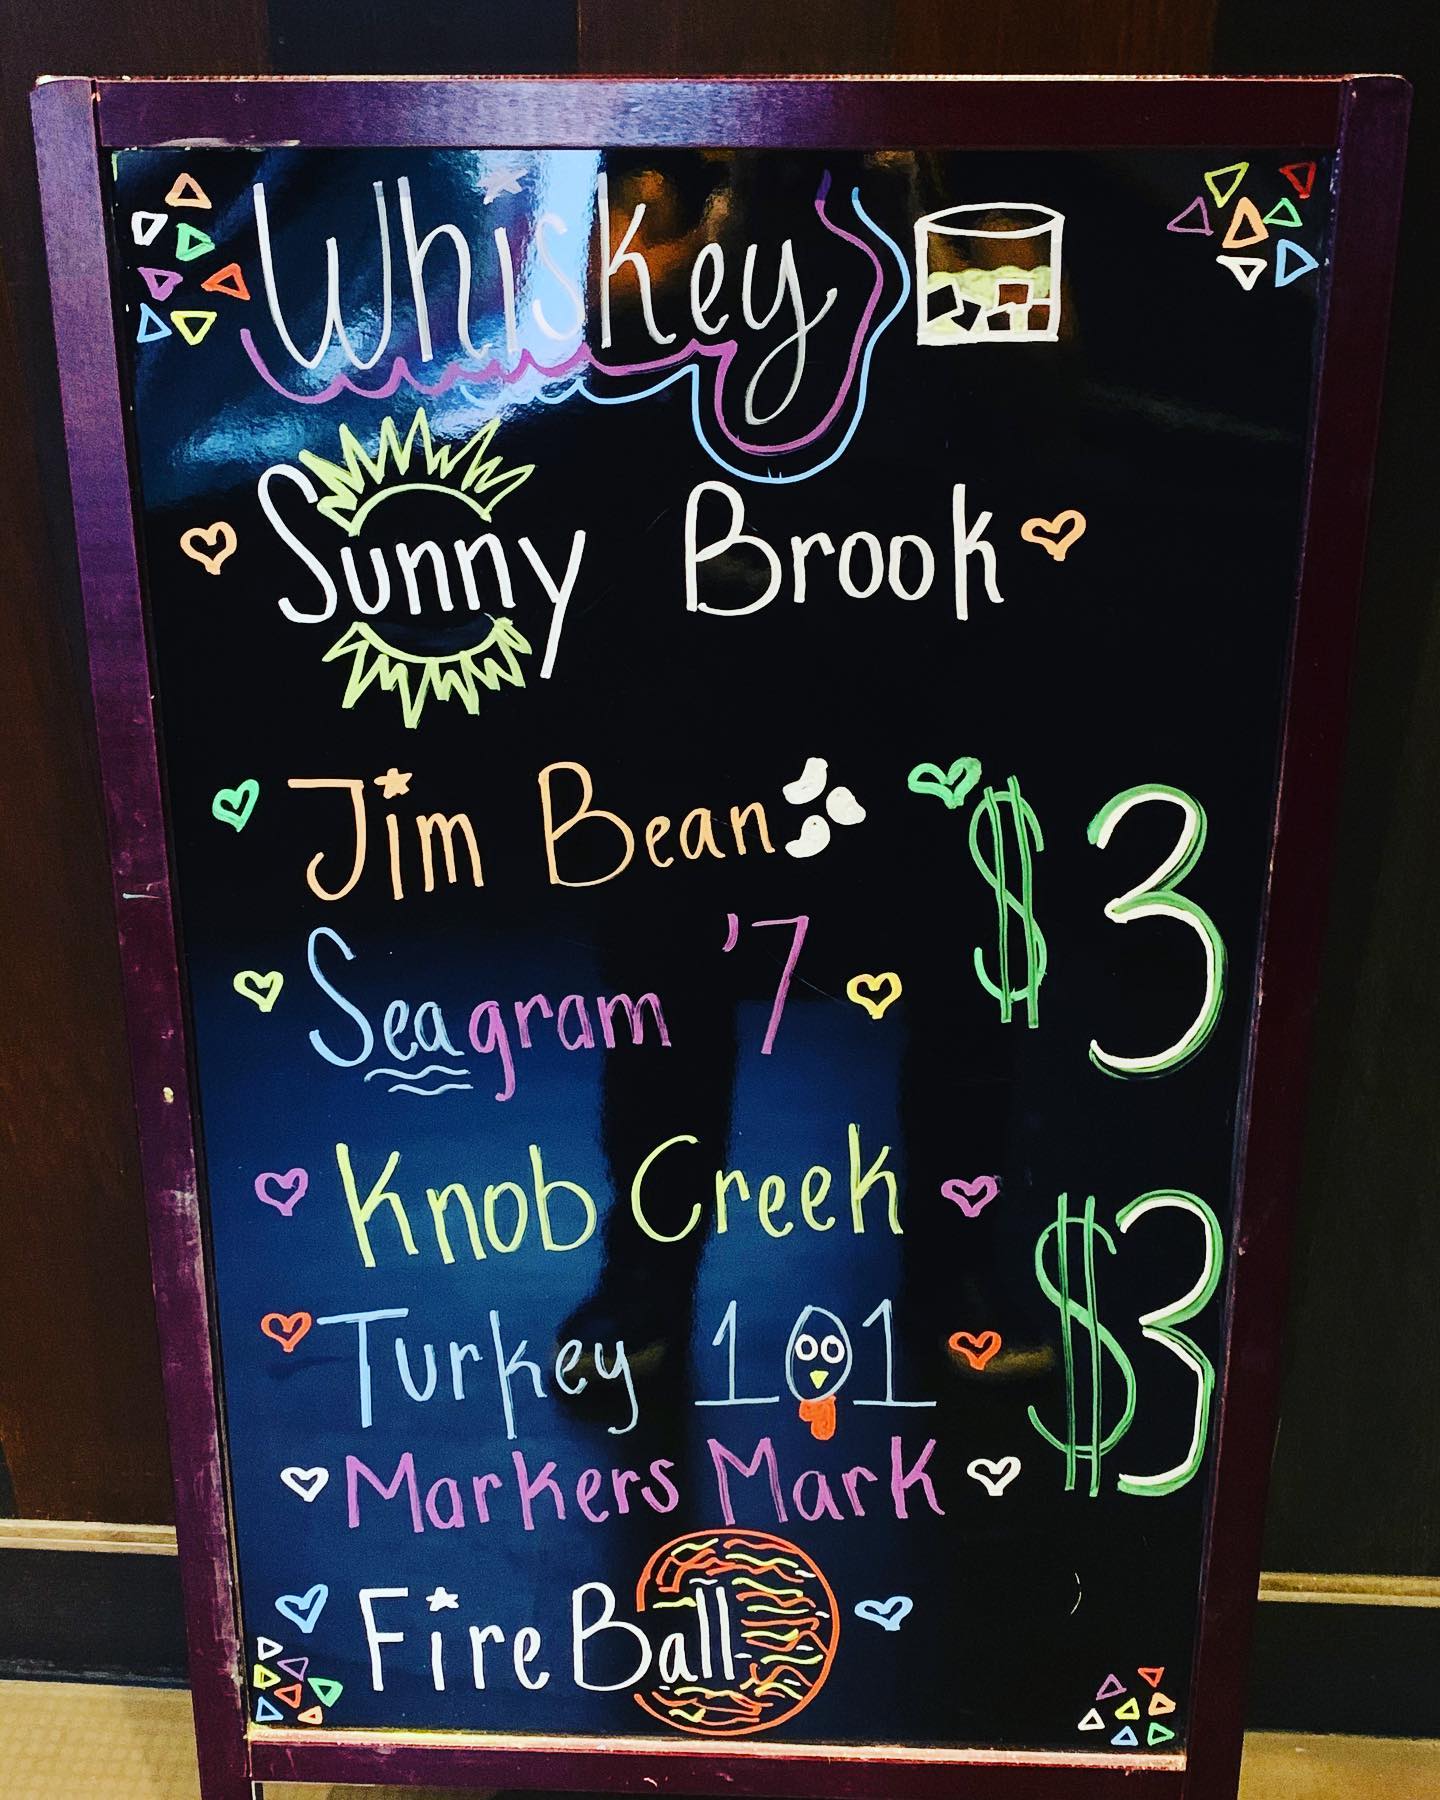 Whiskey
Sunny Brook
Jim Bean
$3
Seagram '7
Knob Creek
$3
Turkey 101
Markers Mark
FireBall